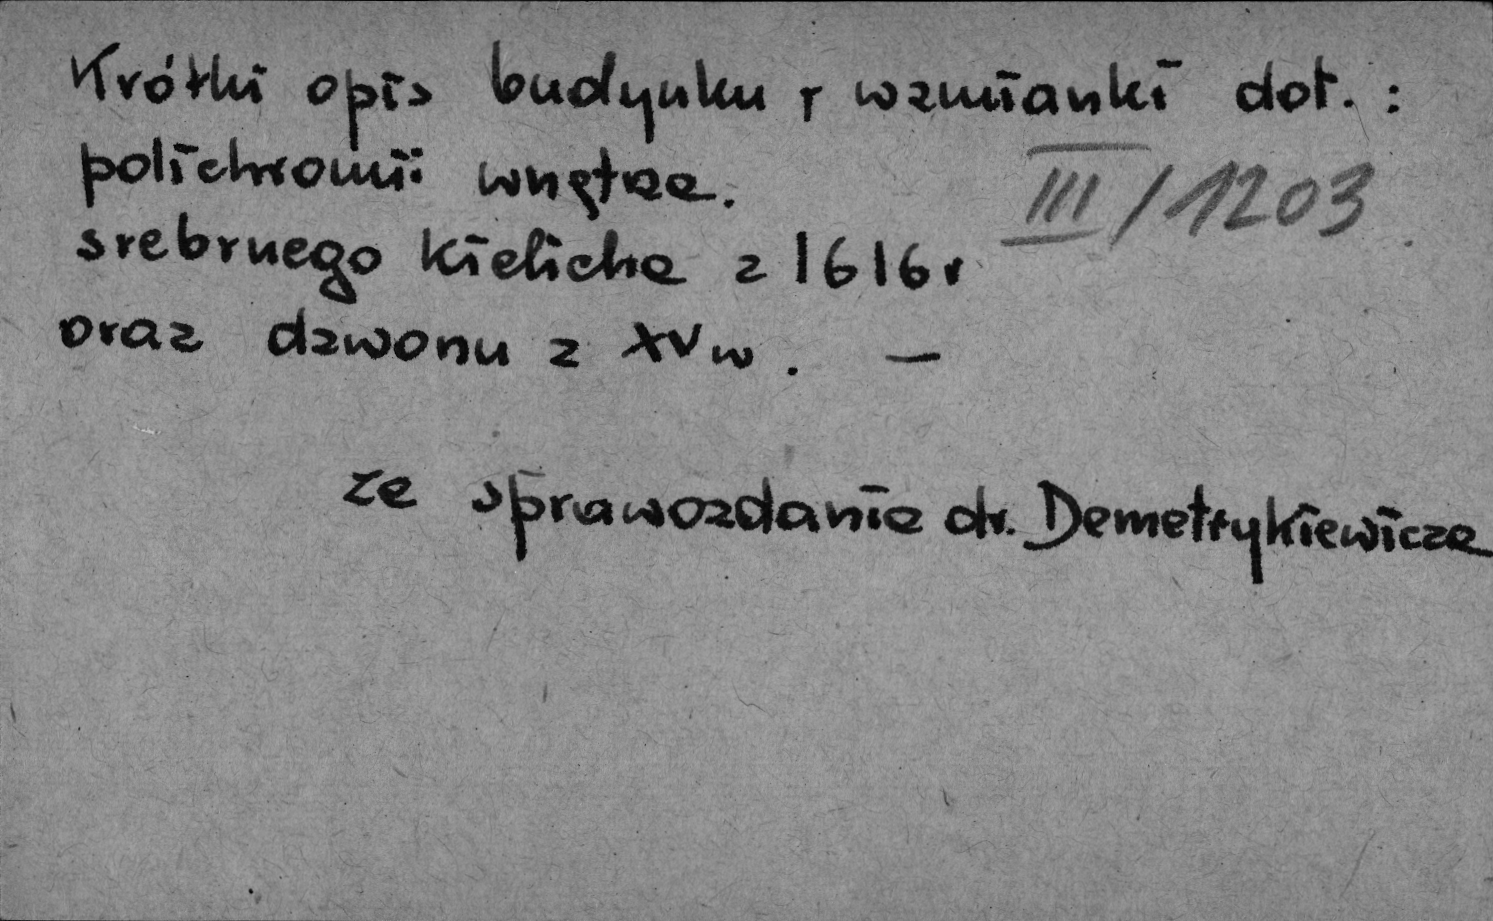 Krótki opis budynku, wzmianki dot. :
polichromii wnętrza.
III/1203
srebrnego kielicha z 1616 r
oraz dzwonu z XV w. —
ze sprawozdania dr. Demetrykiewicza